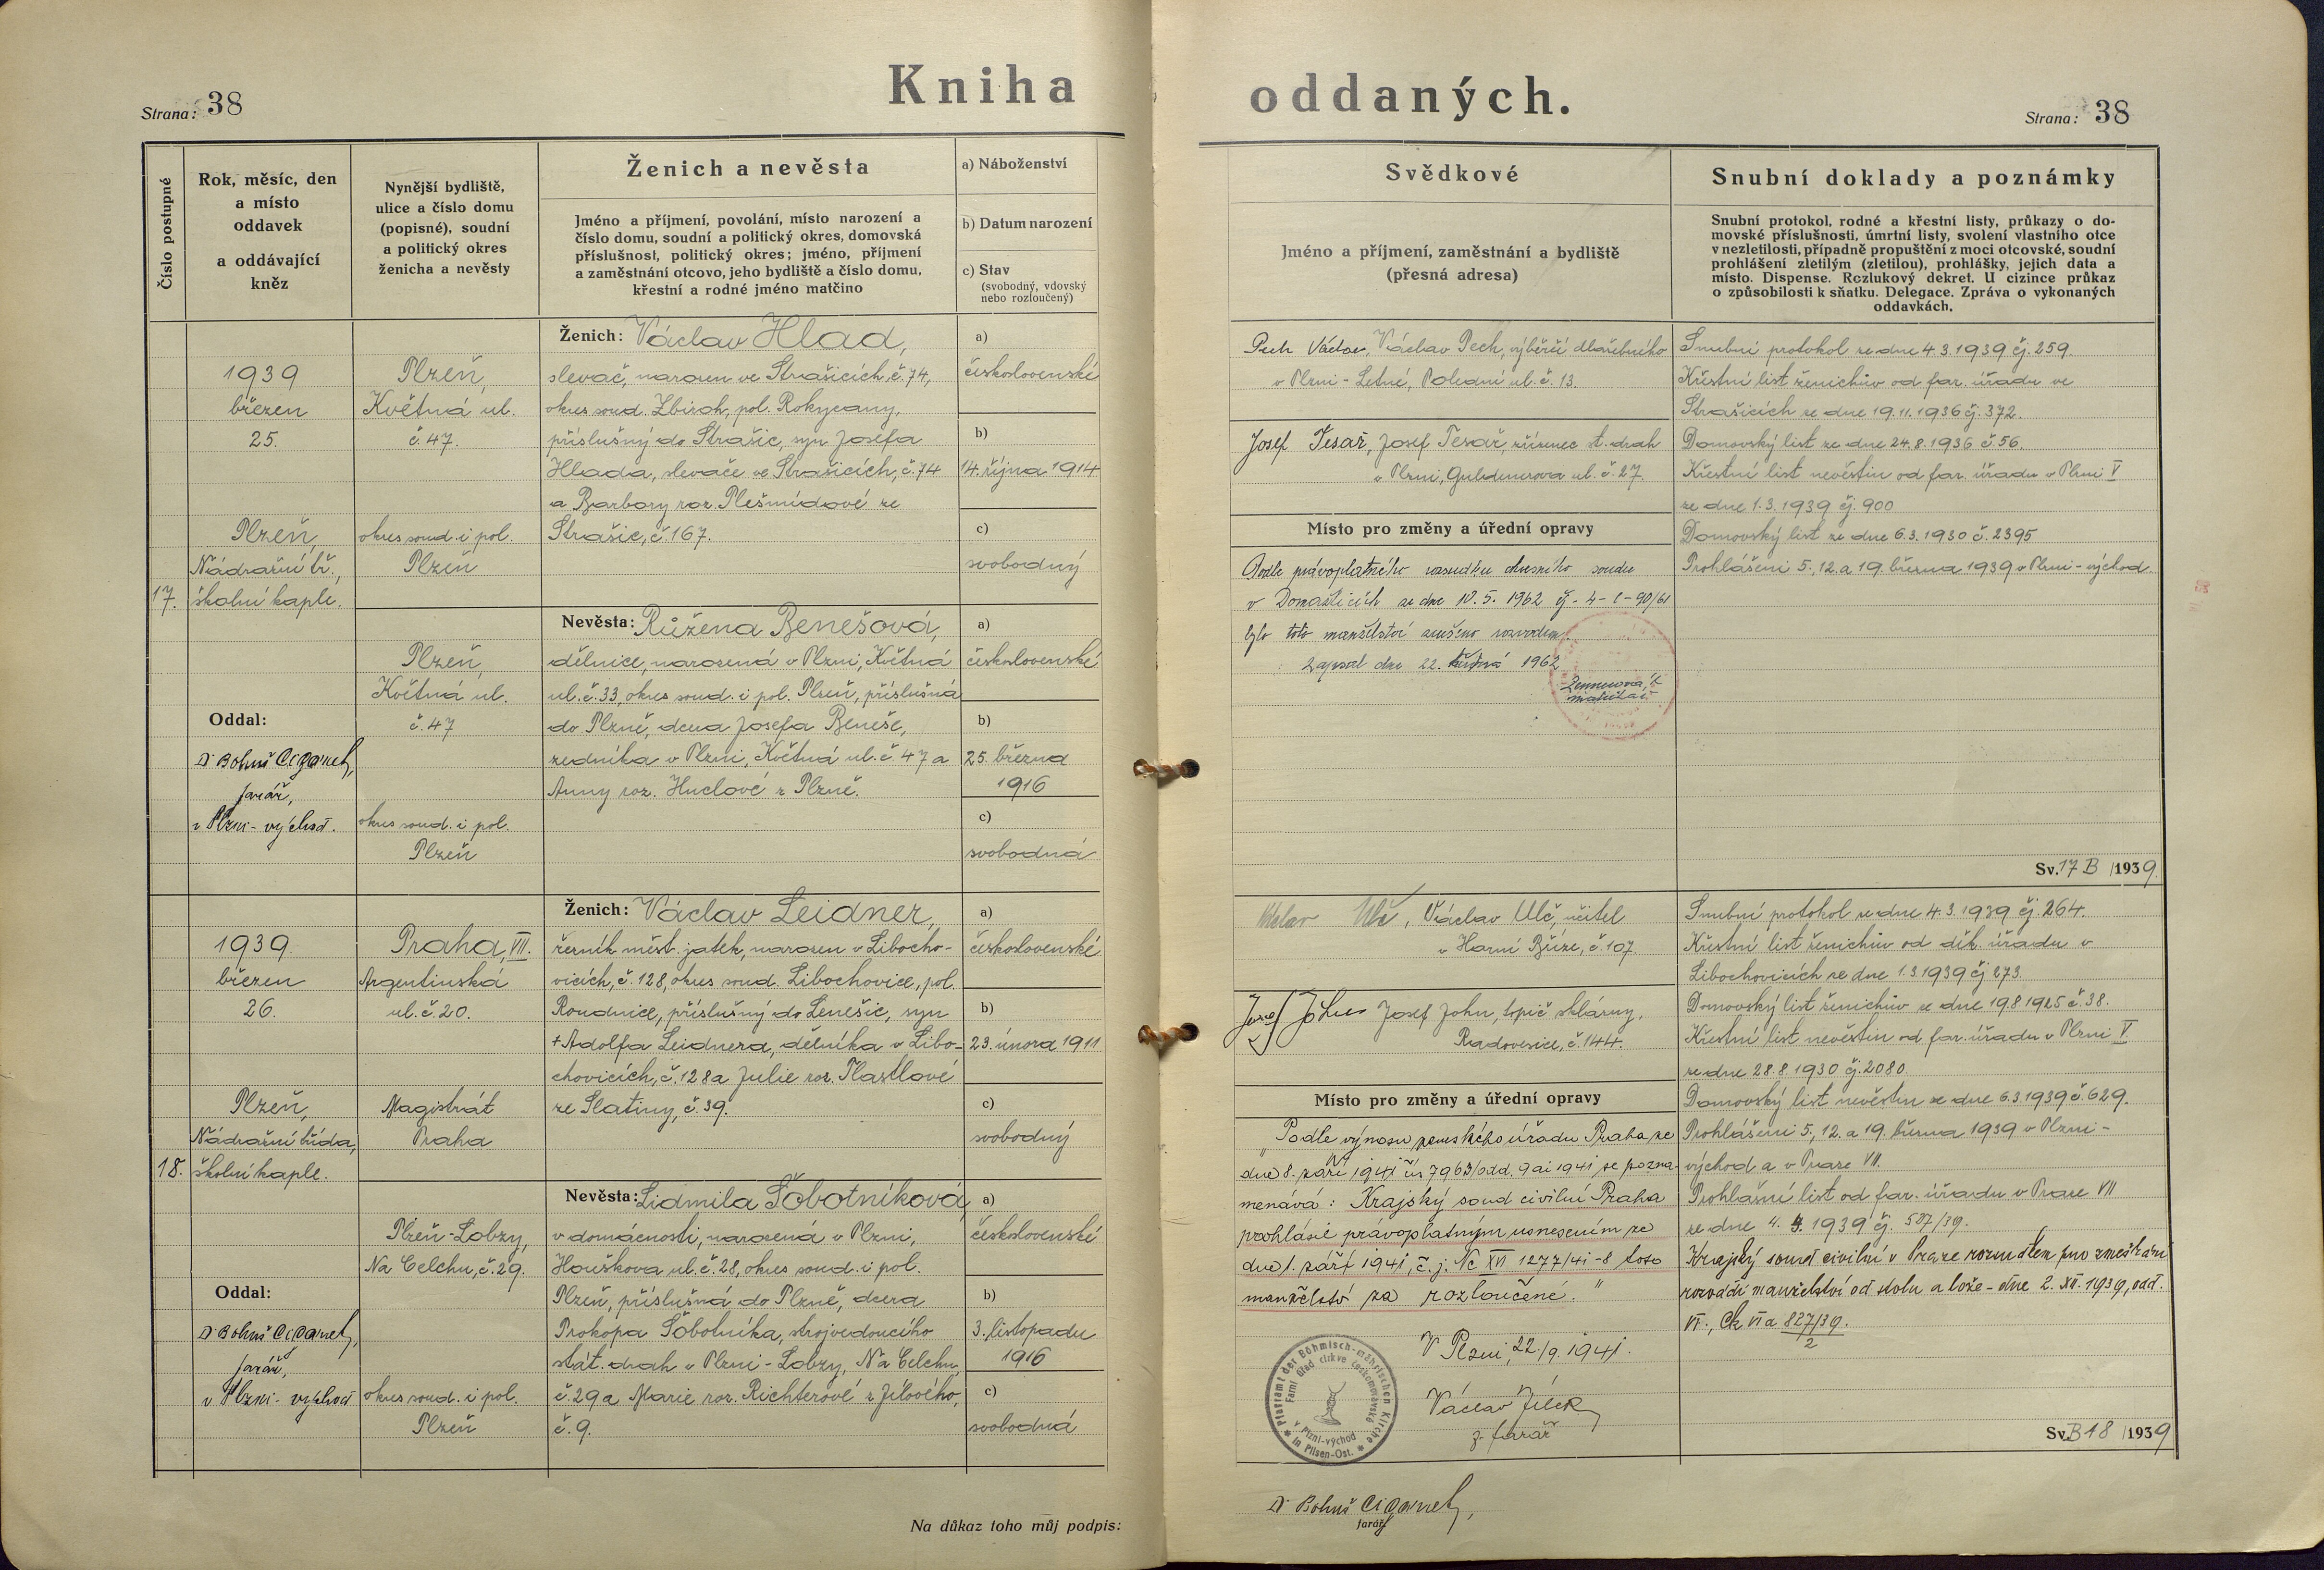 Kniha oddaných.
Strana: 38
Strana: 38
Číslo postupné
Rok, měsíc, den
a místo
oddavek
a oddávající
kněz
Nynější bydliště,
ulice a číslo domu
(popisné), soudní
a politický okres
ženicha a nevěsty
Ženich a nevěsta
Jméno a příjmení, povolání, místo narození a
číslo domu, soudní a politický okres, domovská
příslušnost, politický okres; jméno, příjmení
a zaměstnání otcovo, jeho bydliště a číslo domu,
křestní a rodné jméno matčino
a) Náboženství
b) Datum narození
c) Stav
(svobodný, vdovský
nebo rozloučený)
Svědkové
Jméno a příjmení, zaměstnání a bydliště
(přesná adresa)
Snubní doklady a poznámky
Snubní protokol, rodné a křestní listy, průkazy o do-
movské příslušnosti, úmrtní listy, svolení vlastního otce
v nezletilosti, případně propuštění z moci otcovské, soudní
prohlášení zletilým (zletilou), prohlášky, jejich data a
místo. Dispense. Rozlukový dekret. U cizince průkaz
o způsobilosti k sňatku. Delegace. Zpráva o vykonaných
oddavkách.
17.
1939
březen
25.
Plzeň,
Nádražní tř.,
školní kaple.
Oddal:
Dr Bohuš Cigánek,
farář,
v Plzni - východ.
Plzeň,
Květná ul.
č. 47.
okres soud. i pol.
Plzeň
Ženich: Václav Hlad,
slevač, narozen ve Strašicích, č. 74,
okres soud. Zbiroh, pol. Rokycany,
příslušný do Strašic, syn Josefa
Hlada, slevače ve Strašicích, č. 74
a Barbory roz. Plešmídové ze
Strašic, č. 167.
a)
československé
b)
14. října 1914
c)
svobodný
Plzeň,
Květná ul.
č. 47
okres soud. i pol.
Plzeň
Nevěsta: Růžena Benešová,
dělnice, narozená v Plzni, Květná
ul. č. 33, okres soud. i pol. Plzeň, příslušná
do Plzně, dcera Josefa Beneše,
zedníka v Plzni, Květná ul. č. 47 a
Anny roz. Huclové z Plzně.
a)
československé
b)
25. března
1916
c)
svobodná
Pech Václav, Václav Pech, výběrčí
v Plzni - Letné, Polední ul. č. 13.
Josef Tesař, Josef Tesař, zřízenec st. drah
v Plzni, Guldenerova ul. č. 27.
Místo pro změny a úřední opravy
Podle právoplatného rozsudku okresního soudu
v Domažlicích ze dne 10. 5. 1962 čj. - 4 - C - 90/61
bylo toto manželství zrušeno rozvodem.
Zapsal dne 22. května 1962
matrikář
Snubní protokol ze dne 4. 3. 1939 čj. 259.
Křestní list ženichův od far. úřadu ve
Strašicích ze dne 19. 11. 1936 čj. 372.
Domovský list ze dne 24. 8. 1936 č. 56.
Křestní list nevěstin od far. úřadu v Plzni V
ze dne 1. 3. 1939 čj. 900
Domovský list ze dne 6. 3. 1930 č. 2395
Prohlášeni 5., 12. a 19. března 1939 v Plzni - východ.
Sv. 17 B /1939
18.
1939.
březen
26.
Plzeň,
Nádražní třída,
školní kaple.
Oddal:
Dr Bohuš Cigánek,
farář,
v Plzni - východ
Praha, VII.
Argentinská
ul. č. 20.
Magistrát
Praha
Ženich: Václav Leidner,
řezník měst. jatek, narozen v Libocho-
vicích, č. 128, okres soud. Libochovice, pol.
Roudnice, příslušný do Lenešic, syn
+ Adolfa Leidnera, dělníka v Libo-
chovicích, č. 128 a Julie roz. Hastlové
ze Slatiny, č. 39.
a)
československé
b)
23. února 1911
c)
svobodný
Plzeň - Lobzy,
Na Celchu, č. 29.
okres soud. i pol.
Plzeň
Nevěsta: Lidmila Šobotníková,
v domácnosti, narozená v Plzni,
Houškova ul. č. 28, okres soud. i pol.
Plzeň, příslušná do Plzně, dcera
Prokopa Šobotníka, strojvedoucího
stát. drah v Plzni - Lobzy, Na Celchu,
č. 29 a Marie roz. Richterové z Jílového,
č. 9.
a)
československé
b)
3. listopadu
1916
c)
svobodná
Václav Ulč, Václav Ulč, učitel
v Horní Bříze, č. 107.
Josef John Josef John, topič sklárny,
Radovesice, č. 144.
Místo pro změny a úřední opravy
"Podle výnosu zemského úřadu Praha ze
dne 8. září 1941 čís 7963/odd. 9 ai 1941 se pozna-
menává: Krajský soud civilní Praha
prohlásil právoplatným usnesením ze
dne 1. září 1941, č. j. Nc XVI 1277/41-8 toto
manželství za rozloučené."
V Plzni, 22./9. 1941.
Václav Jílek
z. farář
Pfarramt der Böhmisch-mährischen Kirche
in Pilsen-Ost.
Farní úřad církve českomoravské
v Plzni-východ
Snubní protokol ze dne 4. 3. 1939 čj. 264.
Křestní list ženichův od děk. úřadu v
Libochovicích ze dne 1. 3. 1939 čj 273.
Domovský list ženichův ze dne 19. 8. 1925 č. 38.
Křestní list nevěstin od far. úřadu v Plzni V
ze dne 28. 8. 1930 čj. 2080.
Domovský list nevěstin ze dne 6. 3. 1939 č. 629.
Prohlášeni 5., 12. a 19. března 1939 v Plzni -
východ a v Praze VII.
Prohlašní list od far. úřadu v Praze VII
ze dne 4. 4. 1939 čj. 587/39.
Krajský soud civilní v Praze rozsudkem pro zmeškání
rozvádí manželství od stolu a lože - dne 2. XII. 1939, odd.
VI., Ck VI a 827/39.
2
Sv. B 18 /1939
Na důkaz toho můj podpis:
Dr Bohuš Cigánek,
farář